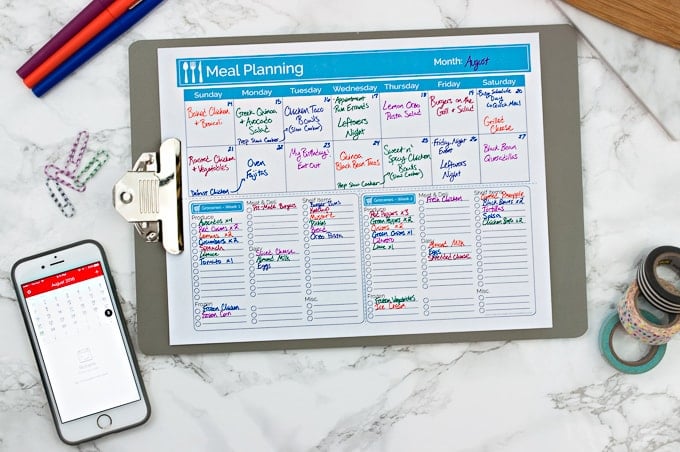 Meal Planning
Month: August
Sunday Monday Tuesday Wednesday Thursday Friday Saturday
14
Baked Chicken
+ Broccoli
15
Greek Quinoa
+ Avocado
Salad
Prep Slow Cooker
16
Chicken Taco
Bowls
(Slow Cooker)
17
Appointment
Run Errands
Leftovers
Night
18
Lemon Orzo
Pasta Salad
19
Burgers on the
Grill + Salad
20
Busy Schedule
Day
Quick Meal
Grilled
Cheese
21
Roasted Chicken
+ Vegetables
Defrost Chicken
22
Oven
Fajitas
23
My Birthday!
Eat Out
24
Quinoa
Black Bean Tacos
Prep Slow Cooker
25
Sweet n'
Spicy Chicken
Bowls
(Slow Cooker)
26
Friday Night
Event
Leftovers
Night
27
Black Bean
Quesadillas
Groceries - Week 1
Produce
Avocados x4
Red Onions x2
Lemons x2
Cucumbers x2
Spinach
Lettuce
Tomato x1
Frozen
Frozen Chicken
Frozen Corn
Meat & Deli
Pre-Made Burgers
Dairy
Sliced Cheese
Almond Milk
Eggs
Shelf Items
Burger Buns
Ketchup
Mustard
Bread
Orzo Pasta
Misc.
Groceries - Week 2
Produce
Red Peppers x3
Green Peppers x2
Onions x2
Green Onions x1
Cilantro
Lime x1
Frozen
Frozen Vegetables
Ice Cream
Meat & Deli
Fresh Chicken
Dairy
Almond Milk
Eggs
Shredded Cheese
Shelf Items
Pineapple
Black Beans x2
Tortillas
Salsa
Misc.
August 2016